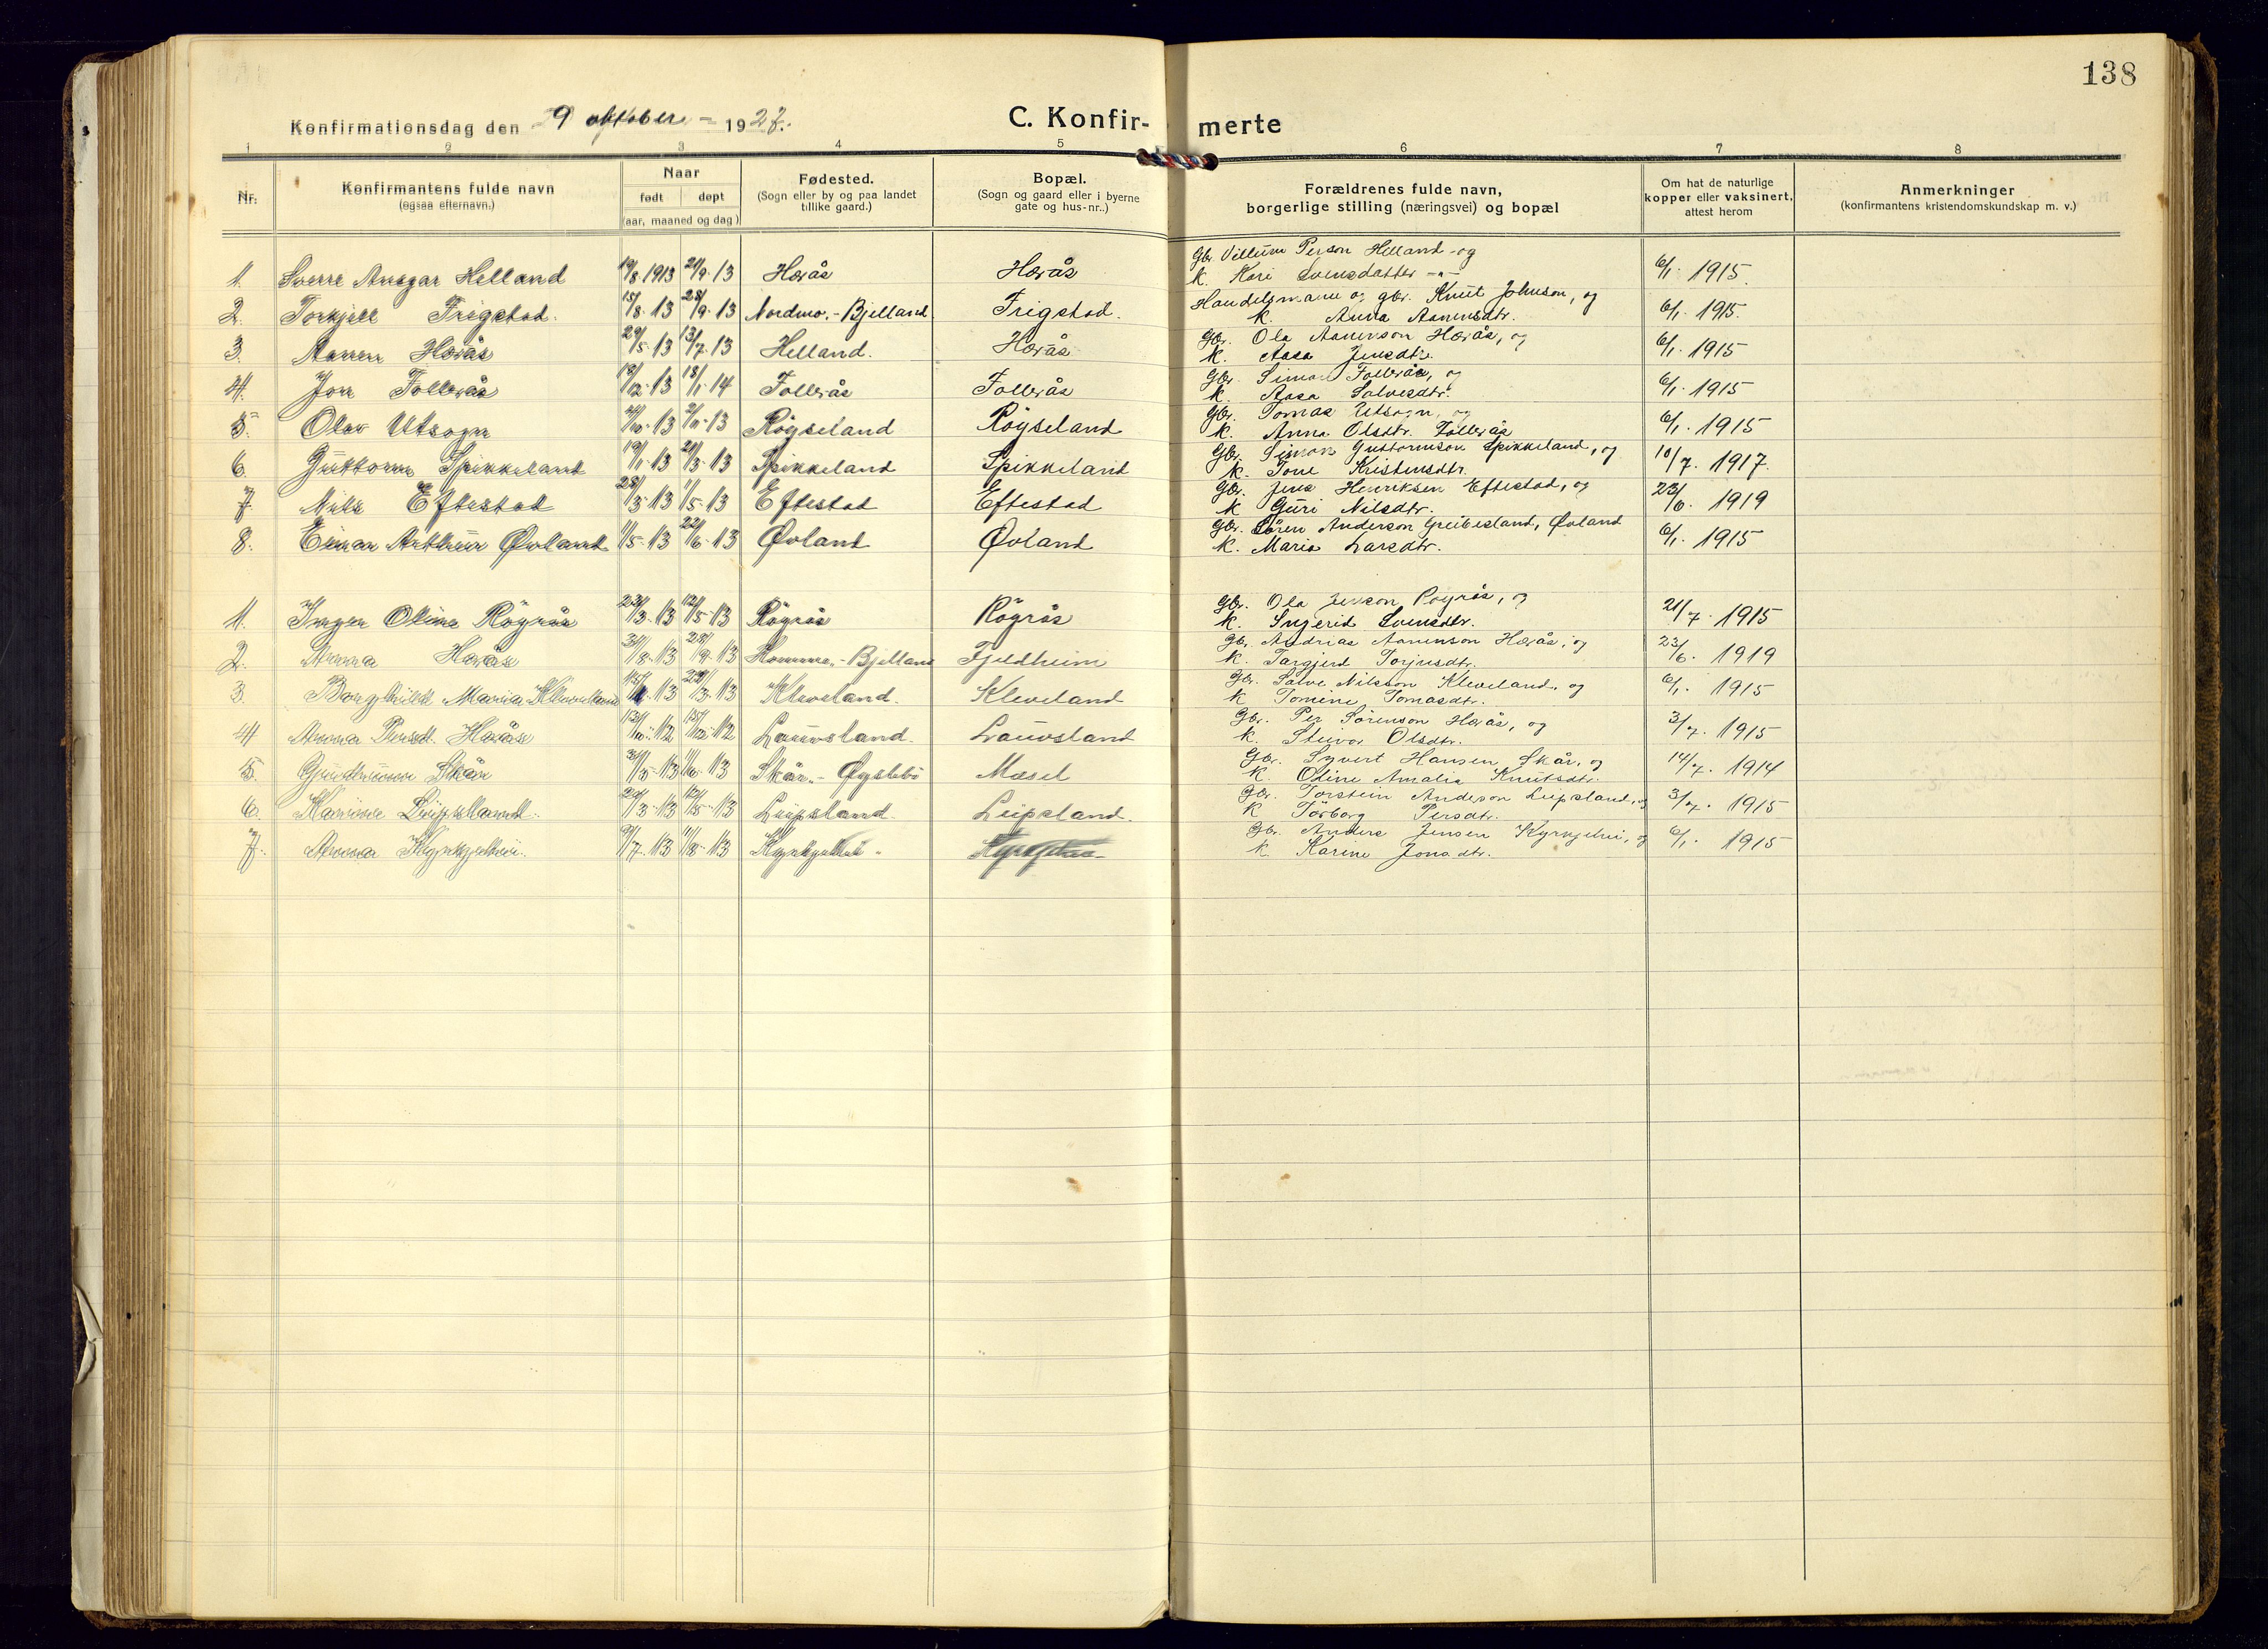 138
Konfirmationsdag den 9 oktober – 1927.
C. Konfir- merte
1 2 3 4 5 6 7 8
Nr.
Konfirmantens fulde navn
(ogsaa efternavn.)
Naar
født døpt
(aar, maaned og dag)
Fødested.
(Sogn eller by og paa landet
tillike gaard.)
Bopæl.
(Sogn og gaard eller i byerne
gate og hus-nr..)
Forældrenes fulde navn,
borgerlige stilling (næringsvei) og bopæl
Om hat de naturlige
kopper eller vaksinert,
attest herom
Anmerkninger
(konfirmantens kristendomskundskap m. v.)
Gbr. Villum Person Helland og
1. Sverre Ansgar Helland 19/8 1913 21/9 13 Herås Herås k. Kari Svensdatter –"– 6/1. 1915.
Handelsmann og gbr. Knut Johnson, og
2. Torkjell Frigstad. 15/8 13 28/9 13 Nordmo.-Bjelland Frigstad. k. Anna Aanensdtr. 6/1. 1915.
Gbr. Ola Aanenson Herås, og
3. Aanen Herås 29/5 13 13/7 13 Helland. Herås k. Aasa Jensdtr. 6/1. 1915
Gbr. Simon Follerås, og
4. Jon Follerås 19/12 13 18/1 14 Follerås Follerås k. Aasa Salvesdtr. 6/1. 1915
Gbr. Tomas Utsogn, og
5. Olav Utsogn 13 2/11 13 Røyseland Røyseland k. Anna Olsdtr. Follerås 6/1. 1915
Gbr. Simon Guttormson Spikkeland, og
6. Guttorm Spikkeland 19/1 13 24/3 13 Spikkeland Spikkeland k. Tone Kristensdtr. 10/7. 1917.
Gbr. Jens Henriksen Eftestad, og
7. Nils Eftestad 28/3 13 1/5 13 Eftestad Eftestad k Guri Nilsdtr. 23/6. 1919
Gbr. Søren Anderson Greibesland, Øvland
8. Einar Arthur Øvland 1/5 13 22/6 13 Øvland Øvland k. Maria Larsdtr. 6/1. 1915
Gbr. Ola Jensson Røgrås, og
1. Inger Oline Røgrås 23/3 13 12/5 13 Røgrås Røgrås k. Ingerid Svensdtr. 21/7. 1915
Gbr. Andrias Aanenson Herås, og
2. Anna Herås 31/8 13 28/9 13 Bjelland Fjeldheim k. Targjerd Torjusdtr. 23/6. 1919
Gbr. Salve Nilsson Kleveland, og
3. Borghild Maria Kleveland 13 13 Kleveland. Kleveland k Tomine Tomasdtr. 6/1. 1915
Gbr. Per Sørenson Herås, og
4 Anna Persd. Herås 12 12 Lauvsland. Lauvsland k. Steivor Olsdtr. 3/7. 1915
Gbr. Syvert Hansen Skår, og
5. Gudrunn Skår 31/3 13 1/6 13 Skår.- Øyslebø Mæsel k. Oline Amalia Knutsdtr. 14/7. 1914
Gbr. Torstein Anderson Leipsland, og
6. Karine Leipsland. 29/3 13 12/5 13 Leipsland. Leipsland. k Torborg Persdtr. 3/7. 1915
Gbr. Anders Jensen Kyrkjehei, og
7. Anna Kyrkjehei. 9/7 13 11/8 13 Kyrkjehei Kyrkjehei k. Karine Jonsdtr. 6/1. 1915